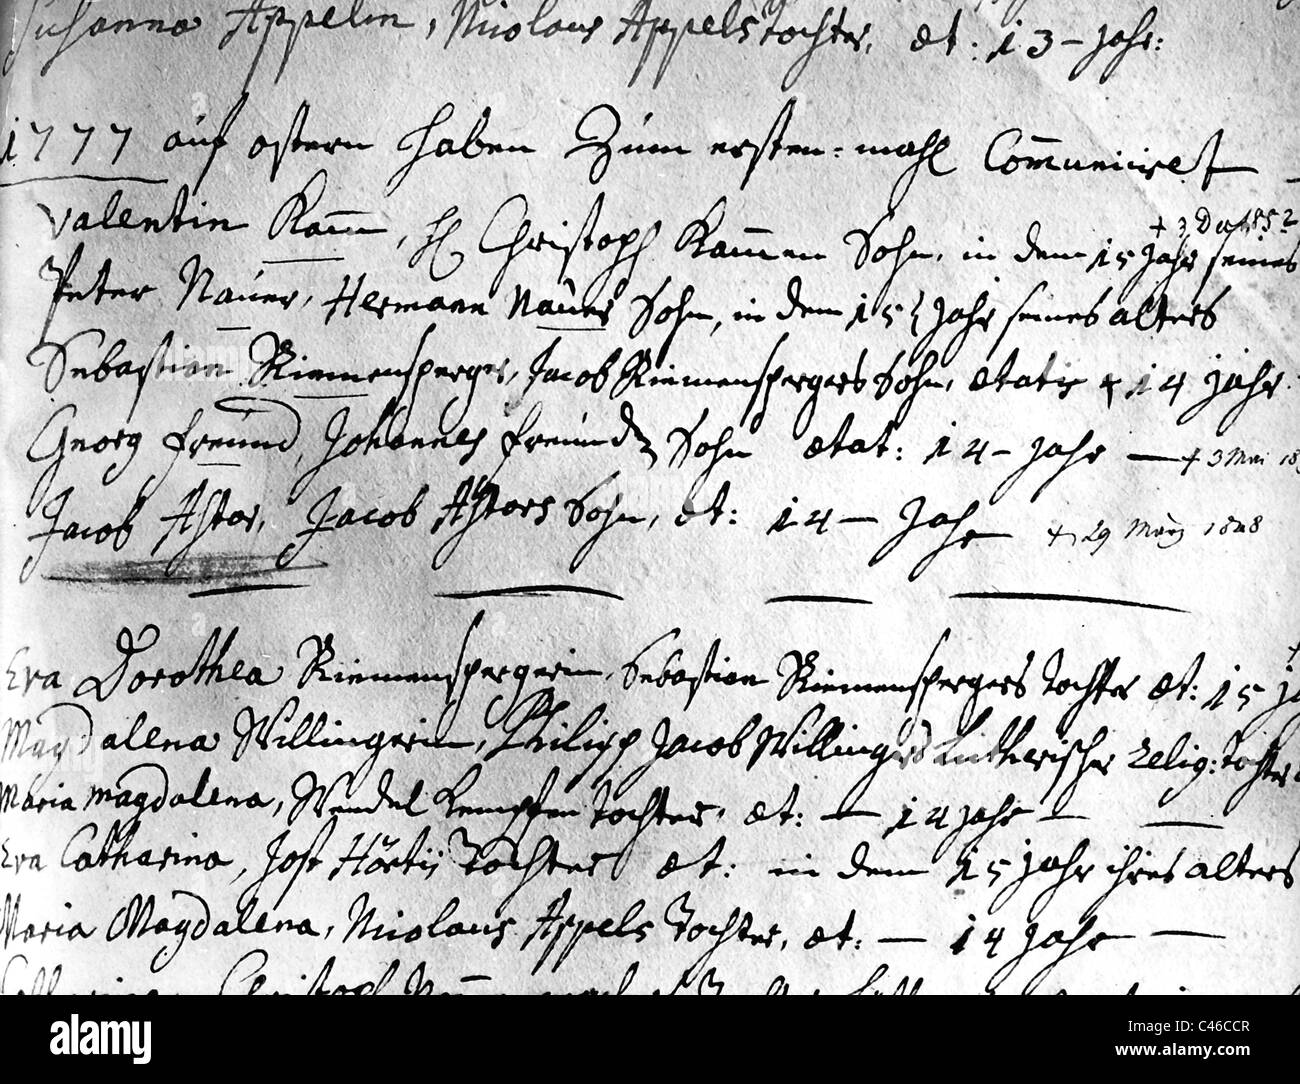 Susanna Appelin, Nicolaus Appels tochter, æt: 13 – Jahr:
1777 auf ostern haben Zum ersten=mahl Communiciret
Valentin Kam̅, Christoph Kam̅en Sohn, in dem 15 Jahr seines
Peter Nauer, Hermann Nauers Sohn, in dem 15 Jahr seines alters
Sebastian Riemensperger, Jacob Riemenspergers Sohn, ætatis 14 Jahr
Georg Freund, Johannes Freunds Sohn ætat: 14 – Jahr — † 3 Mai
Jacob Astor, Jacob Astors Sohn, æt: 14 — Jahr † 29 März 1848
Eva Dorothea Riemenspergerin, Sebastian Riemenspergers tochter æt: 15
Magdalena Willingerin, Philipp Jacob Willingers Lutherischer Relig: tochter
Maria Magdalena, Wendel tochter, æt: — 14 Jahr —
Eva Catharina, Jost Tochter æt: in dem 15 Jahr ihres alters
Maria Magdalena, Nicolaus Appels Tochter, æt: — 14 Jahr —
Christoph
alamy
Image ID: C46CCR
www.alamy.com